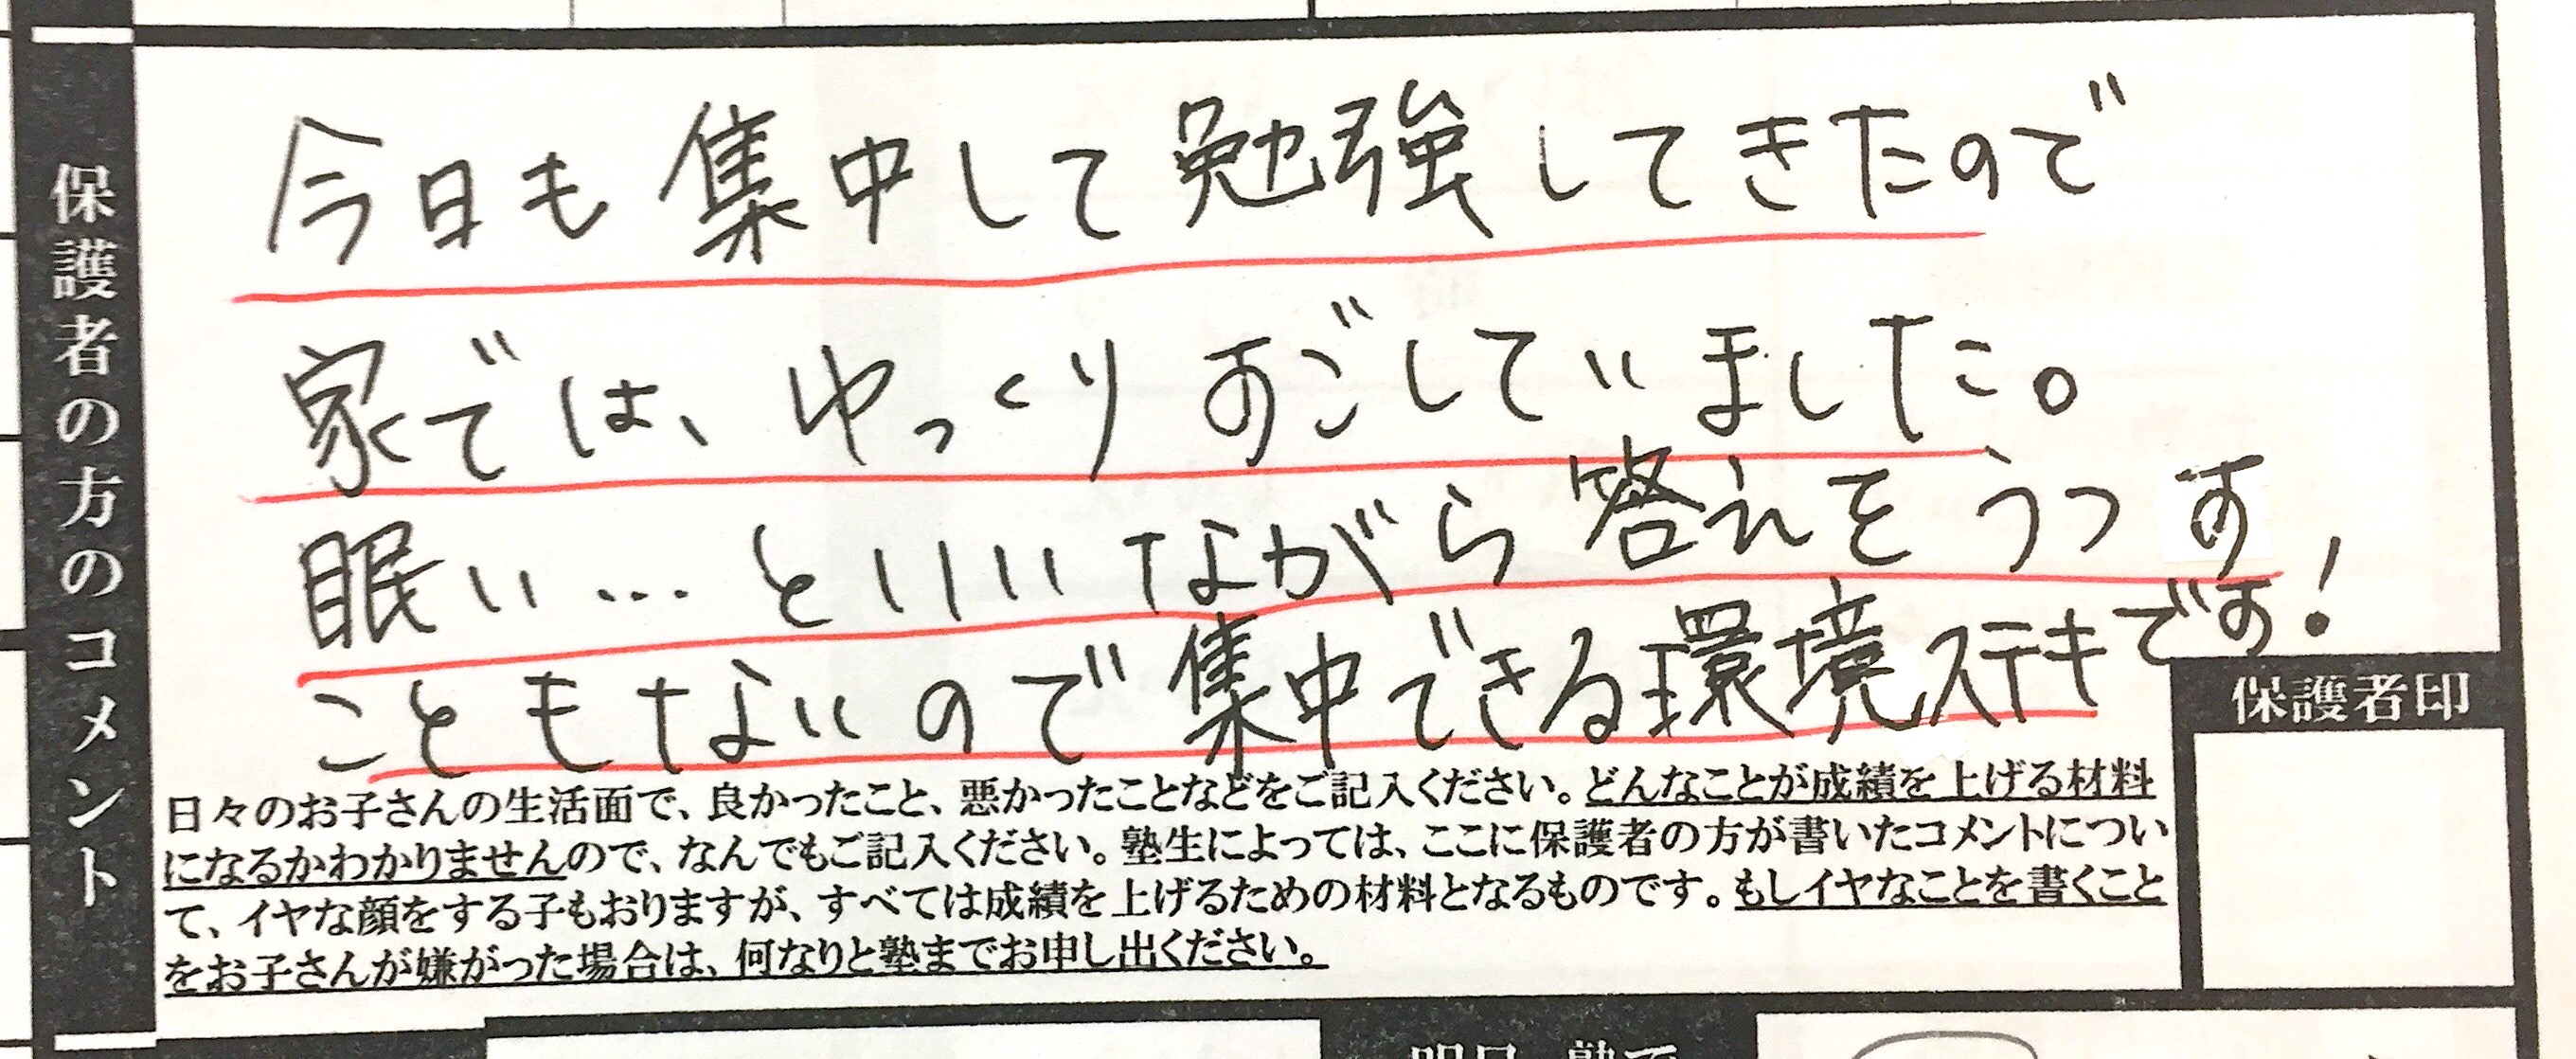 保護者の方のコメント
今日も集中して勉強してきたので
家では、ゆっくりすごしていました。
眠い…といいながら答えをうつす
こともないので集中できる環境ステキです!
保護者印
日々のお子さんの生活面で、良かったこと、悪かったことなどをご記入ください。どんなことが成績を上げる材料
になるかわかりませんので、なんでもご記入ください。塾生によっては、ここに保護者の方が書いたコメントについ
て、イヤな顔をする子もおりますが、すべては成績を上げるための材料となるものです。もしイヤなことを書くこと
をお子さんが嫌がった場合は、何なりと塾までお申し出ください。
明日、塾で